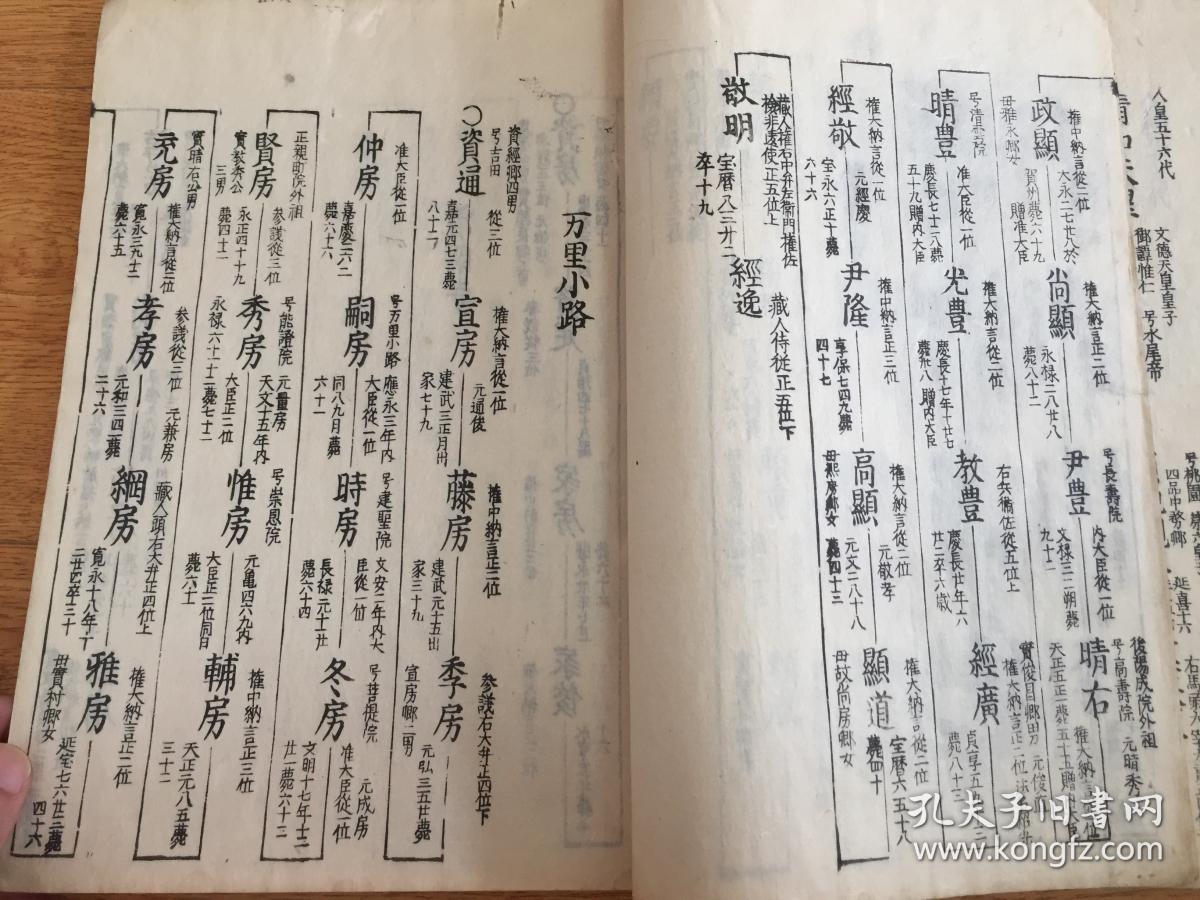 人皇五十六代
文德天皇皇子
御諱惟仁 号水尾帝
後陽成院外祖
号高壽院 元晴秀
權中納言從二位
政顯
大永二七廿八於
賀州薨六十九
贈准大臣
母雅永卿女
權大納言正二位
尚顯
永禄二八廿八
薨八十二
号長壽院
尹豊
内大臣從一位
文禄三二朔薨
九十二
晴右
權大納言
号清雲院
晴豊
准大臣從一位
慶長七十二八薨
五十九贈内大臣
權大納言從二位
光豊
慶長十七年十廿七
薨卅八贈内大臣
教豊
右兵衛佐從五位上
慶長廿年六
廿二卒六歳
經廣
薨八十三
權大納言從一位
經敬
元經慶
宝永六正十薨
六十六
權中納言正三位
尹隆
享保七四九薨
四十七
權大納言從二位
高顯
元敬孝
元文二八十八
薨四十三
母熙房卿女
權大納言從二位
顯道
宝暦六五十八
薨四十
母故尚房卿女
敬明
藏人權右中弁左衛門權佐
檢非違使正五位上
宝暦八三廿二
卒十九
經逸
藏人侍從正五位下
万里小路
資經卿四男
号吉田
○資通
從三位
嘉元四七三薨
八十二
權大納言從一位
宣房
元通俊
建武三正月出
家七十九
權中納言正二位
藤房
建武元十五出
家三十九
參議右大弁正四位下
季房
元弘三五廿薨
宣房卿二男
准大臣從一位
仲房
嘉慶二六二
薨六十六
号万里小路
嗣房
應永三年内
大臣從一位
同八九月薨
六十一
号建聖院
時房
文安二年内大
臣從一位
長禄元十一廿
薨六十四
号菩提院
冬房
元成房
准大臣從一位
文明十七年十二
廿一薨六十三
正親町院外祖
賢房
參議從三位
永正四十十九
薨四十二
實教秀公
三男
号能證院
秀房
元量房
天文十五年内
大臣正二位
永禄六十一十二薨七十二
号崇恩院
惟房
元亀四六九内
大臣正二位同日
薨六十一
輔房
權中納言正三位
天正元八五薨
三十二
實晴右公男
充房
權大納言從二位
寛永三九十二
薨六十五
參議從三位
孝房
元兼房
元和三四二薨
二十六
綱房
藏人頭右大弁正四位上
寛永十八年丁
二廿四卒三十
雅房
權大納言正二位
延宝七六廿三薨
四十六
母實村卿女
孔夫子旧书网
www.kongfz.com